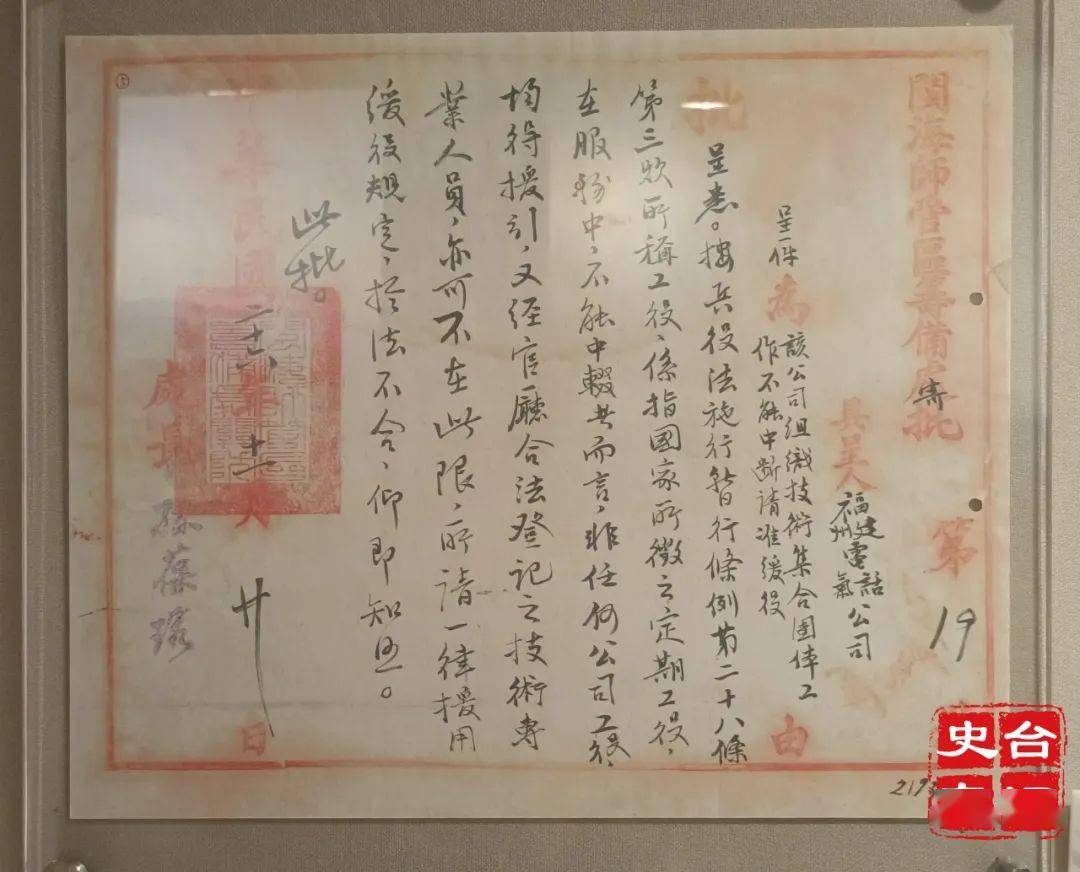 閩海師管區籌備處批 第 19
具呈人 福建電話
福州電氣 公司
呈一件 為 該公司組織技術集合團体工
作不能中斷請准緩役 由
批
呈悉。按兵役法施行暫行條例第二十八條
第三款所稱工役、係指國家所徵之定期工役、
在服務中、不能中輟者而言、非任何公司工役、
均得援引、又經官廳合法登記之技術專
業人員、亦可不在此限、所請一律援用
緩役規定、於法不合、仰即知照。
此批。
華民國二十六年十一月廿日
處長 孫葆瑢
219
史台